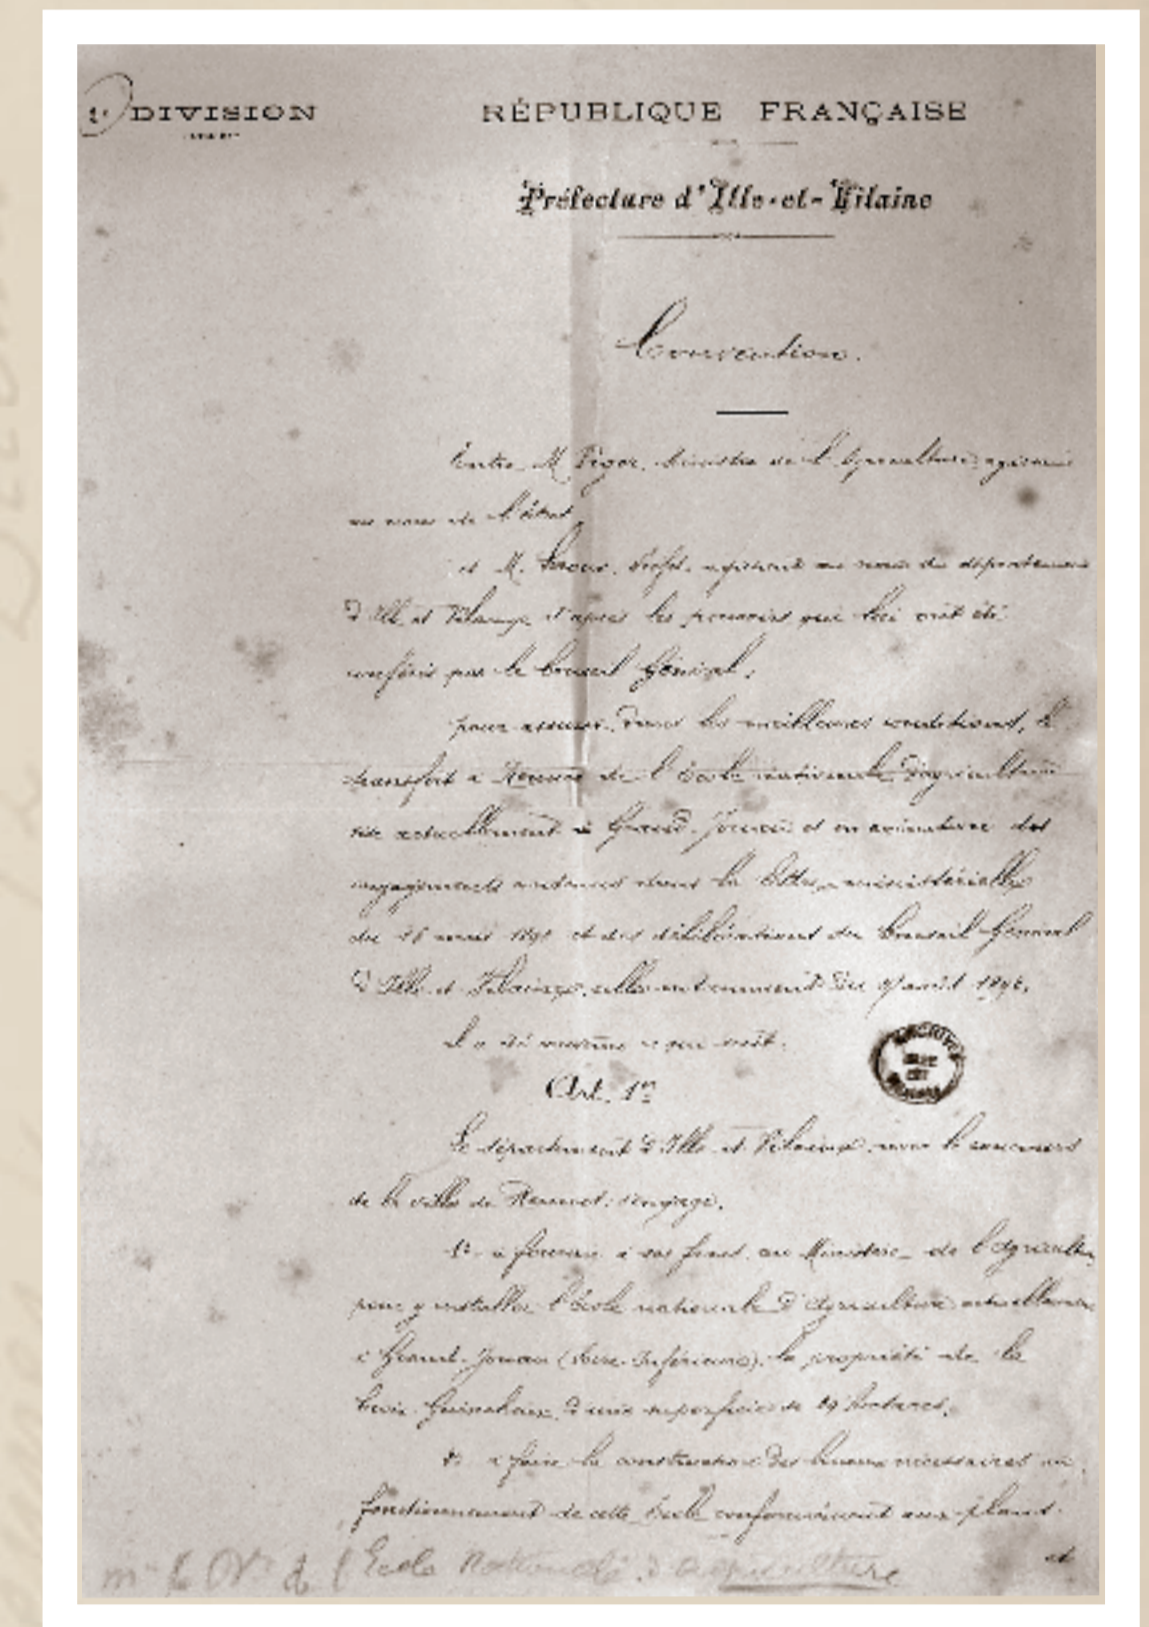 1e DIVISION
RÉPUBLIQUE FRANÇAISE
Préfecture d'Ille-et-Vilaine
Convention.
Entre M. Viger, Ministre de l'Agriculture, agissant
au nom de l'état
et M. Leroux, Préfet, agissant au nom du département
d'Ille et Vilaine, d'après les pouvoirs qui lui ont été
conférés par le Conseil Général;
pour assurer, dans les meilleures conditions, le
transfert à Rennes de l'école nationale d'agriculture
sise actuellement à Grand-Jouan et en
engagements contenus dans la lettre ministérielle
du 26 mars 189 et des délibérations du Conseil Général
d'Ille et Vilaine, notamment du août 189
Il a été convenu ce qui suit.
Art. 1er
Le département d'Ille et Vilaine, avec le concours
de la ville de Rennes, s'engage.
1º à fournir à ses frais, au Ministère de l'Agriculture
pour y installer l'école nationale d'Agriculture actuellement
à Grand-Jouan (Loire-Inférieure), la propriété de la
d'une superficie de hectares.
2º à faire la construction des locaux nécessaires au
fonctionnement de cette école conformément aux plans
et
l'Ecole Nationale d'agriculture